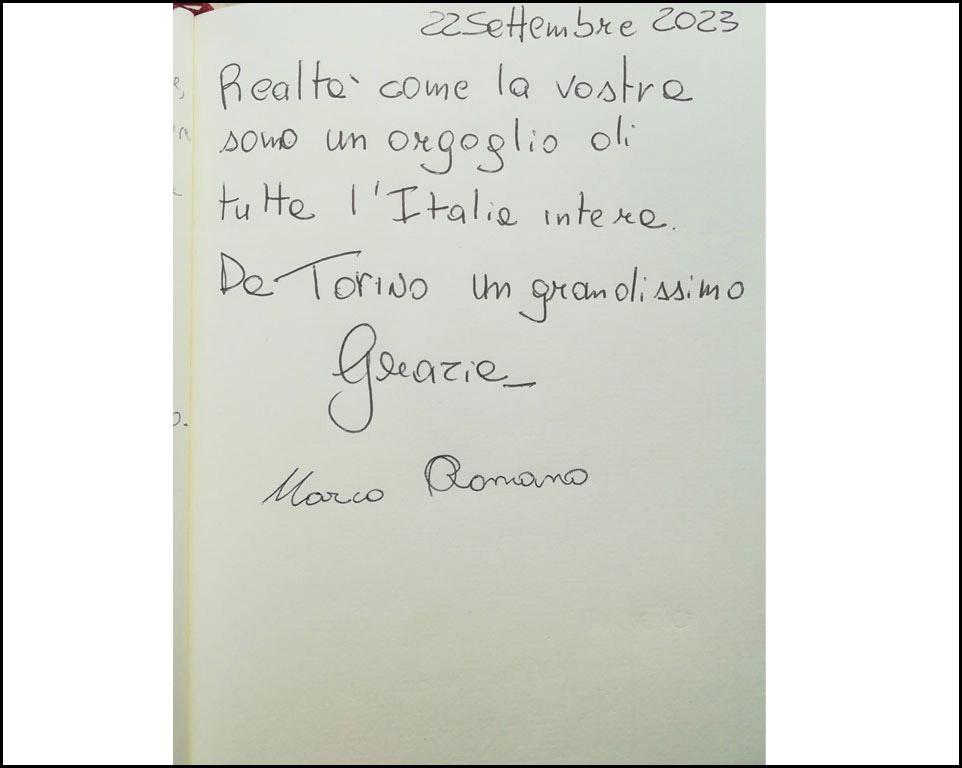 22 Settembre 2023
Realtà come la vostra
sono un orgoglio di
tutta l'Italia intera.
Da Torino un grandissimo
Grazie_
Marco Romano